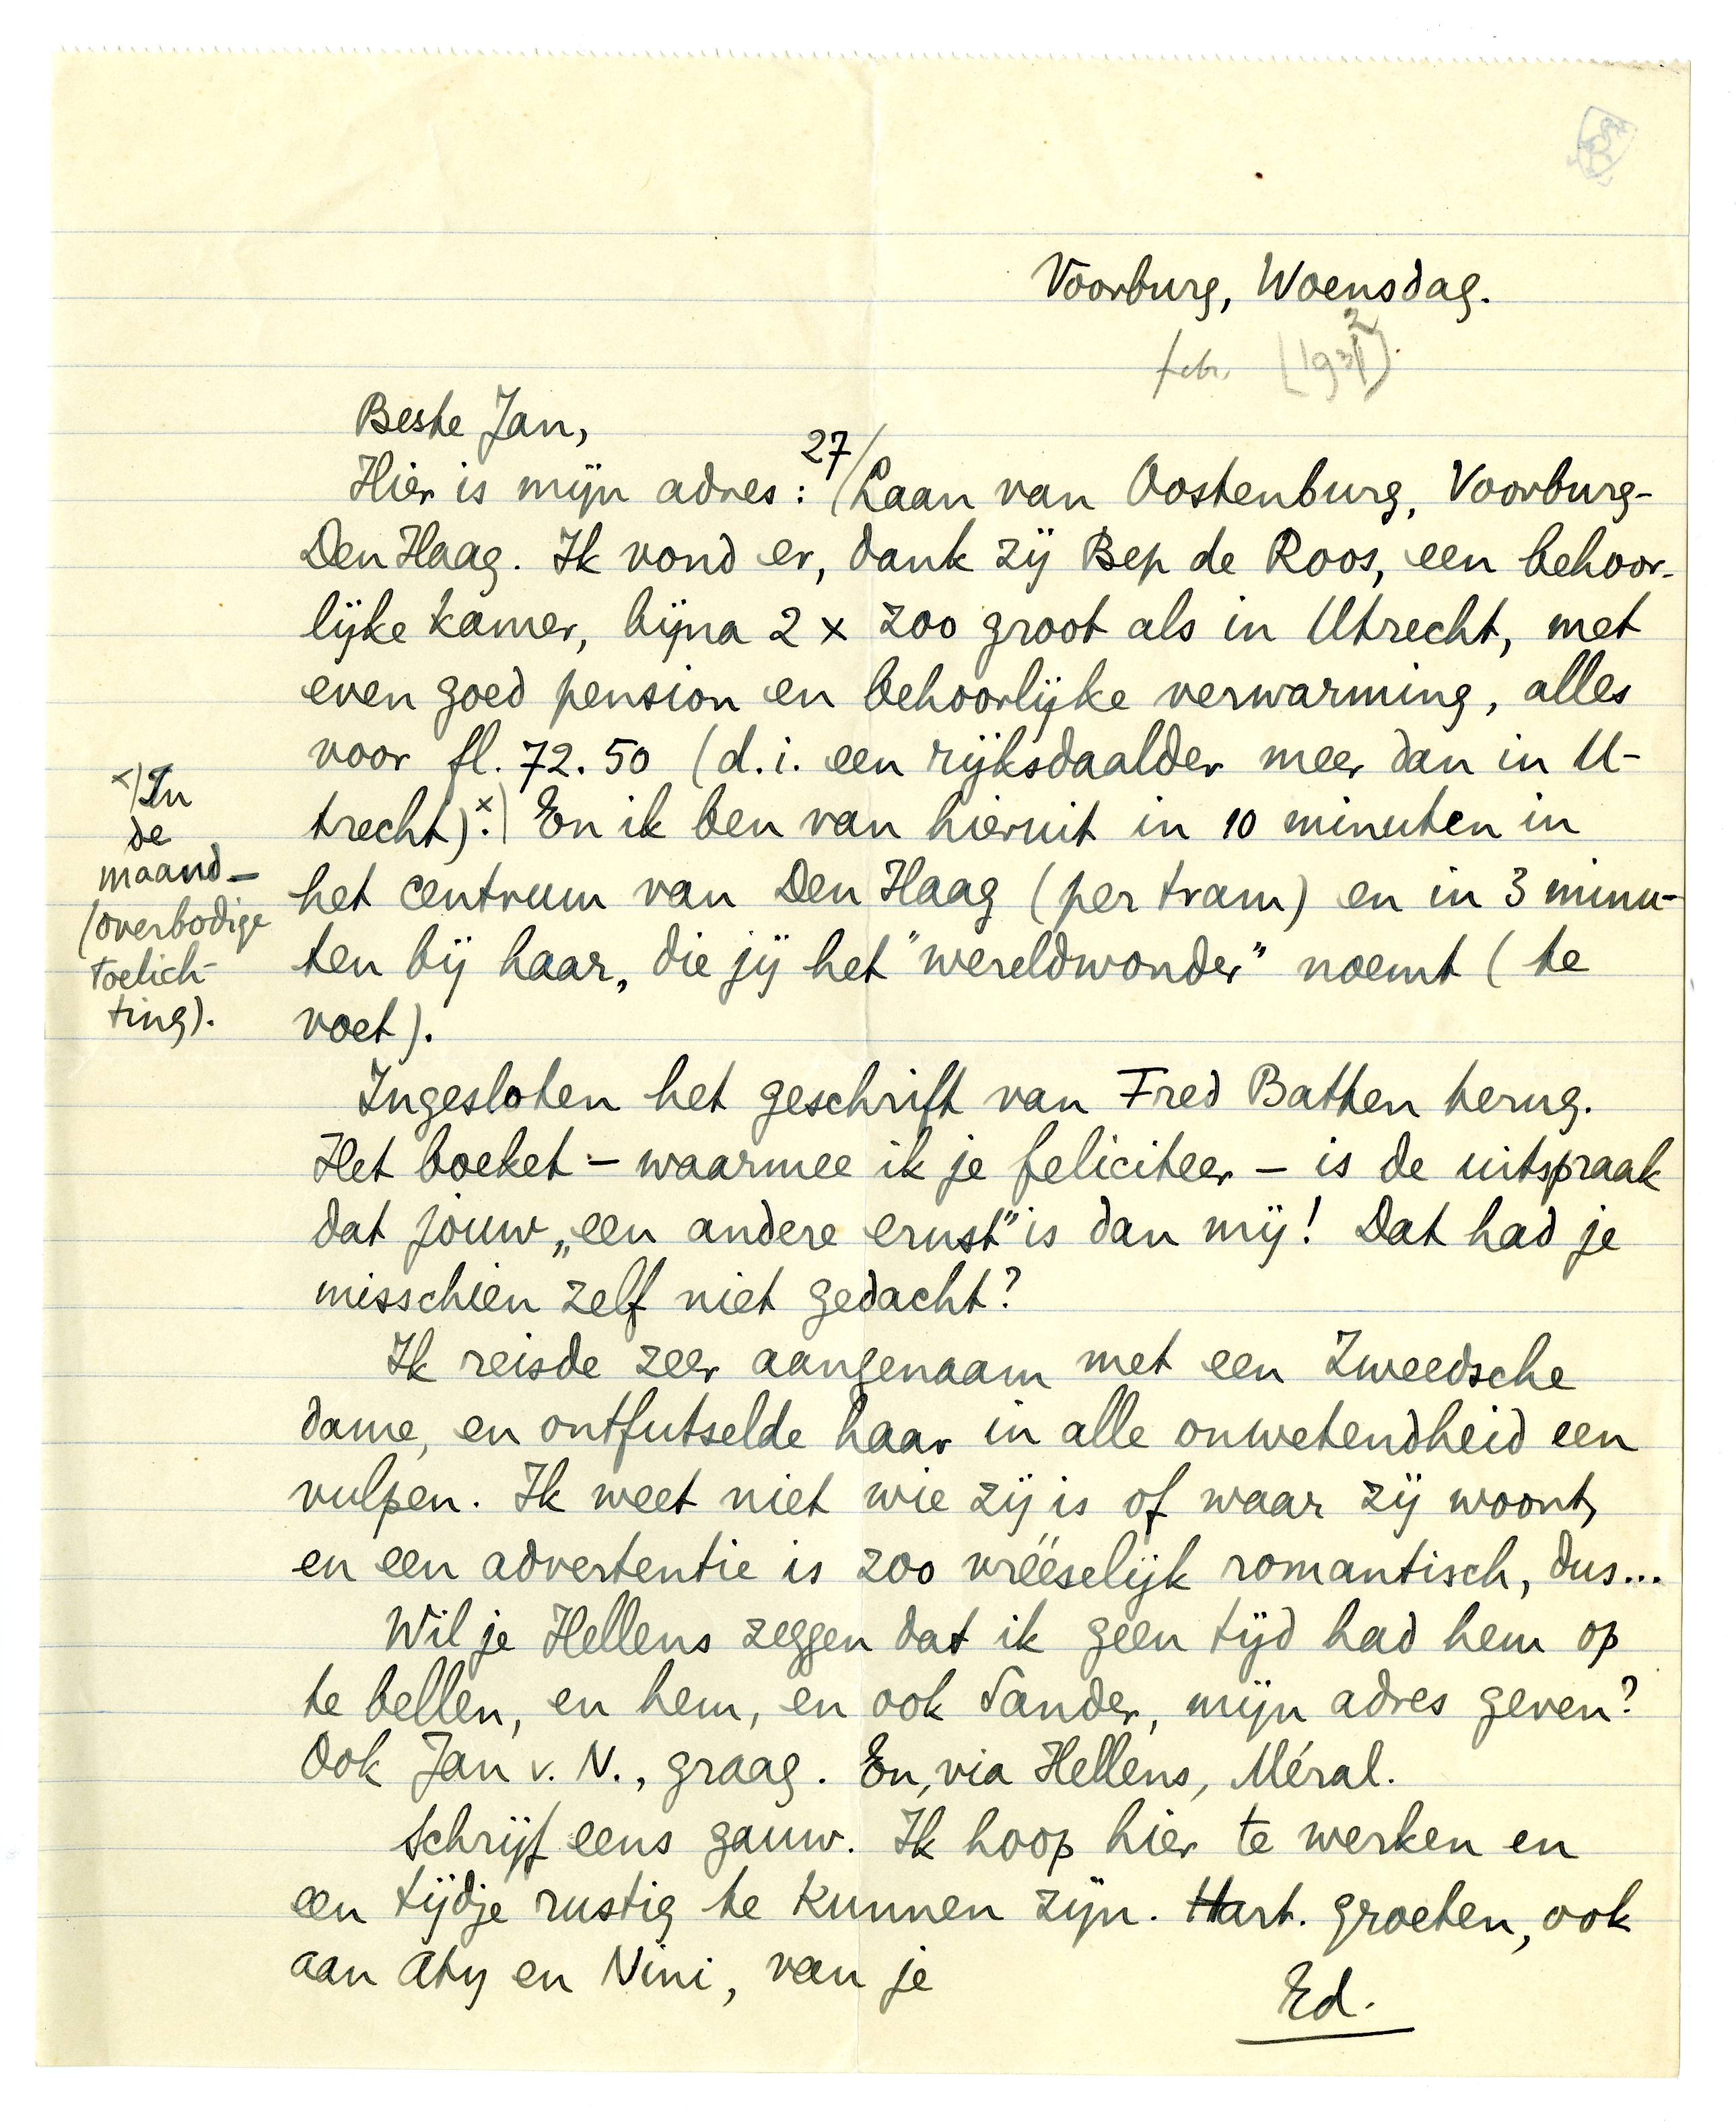 Voorburg, Woensdag.
febr. (1932)
Beste Jan,
Hier is mijn adres: 27/ Laan van Oostenburg, Voorburg-
Den Haag. Ik vond er, dank zij Bep de Roos, een behoor-
lijke kamer, bijna 2 x zoo groot als in Utrecht, met
even goed pension en behoorlijke verwarming, alles
voor fl. 72.50 (d.i. een rijksdaalder meer dan in U-
trecht).x) En ik ben van hieruit in 10 minuten in
het centrum van Den Haag (per tram) en in 3 minu-
ten bij haar, die jij het "wereldwonder" noemt (te
voet).
x) In
de
maand –
(overbodige
toelich-
ting).
Ingesloten het geschrift van Fred Batten terug.
Het boeket – waarmee ik je feliciteer – is de uitspraak
dat jouw „een andere ernst" is dan mij! Dat had je
misschien zelf niet gedacht?
Ik reisde zeer aangenaam met een Zweedsche
dame, en ontfutselde haar in alle onwetendheid een
vulpen. Ik weet niet wie zij is of waar zij woont,
en een advertentie is zoo vréeselijk romantisch, dus...
Wil je Hellens zeggen dat ik geen tijd had hem op
te bellen, en hem, en ook Sander, mijn adres geven?
Ook Jan v. N., graag. En, via Hellens, Méral.
Schrijf eens gauw. Ik hoop hier te werken en
een tijdje rustig te kunnen zijn. Hart. groeten, ook
aan Aty en Nini, van je
Ed.